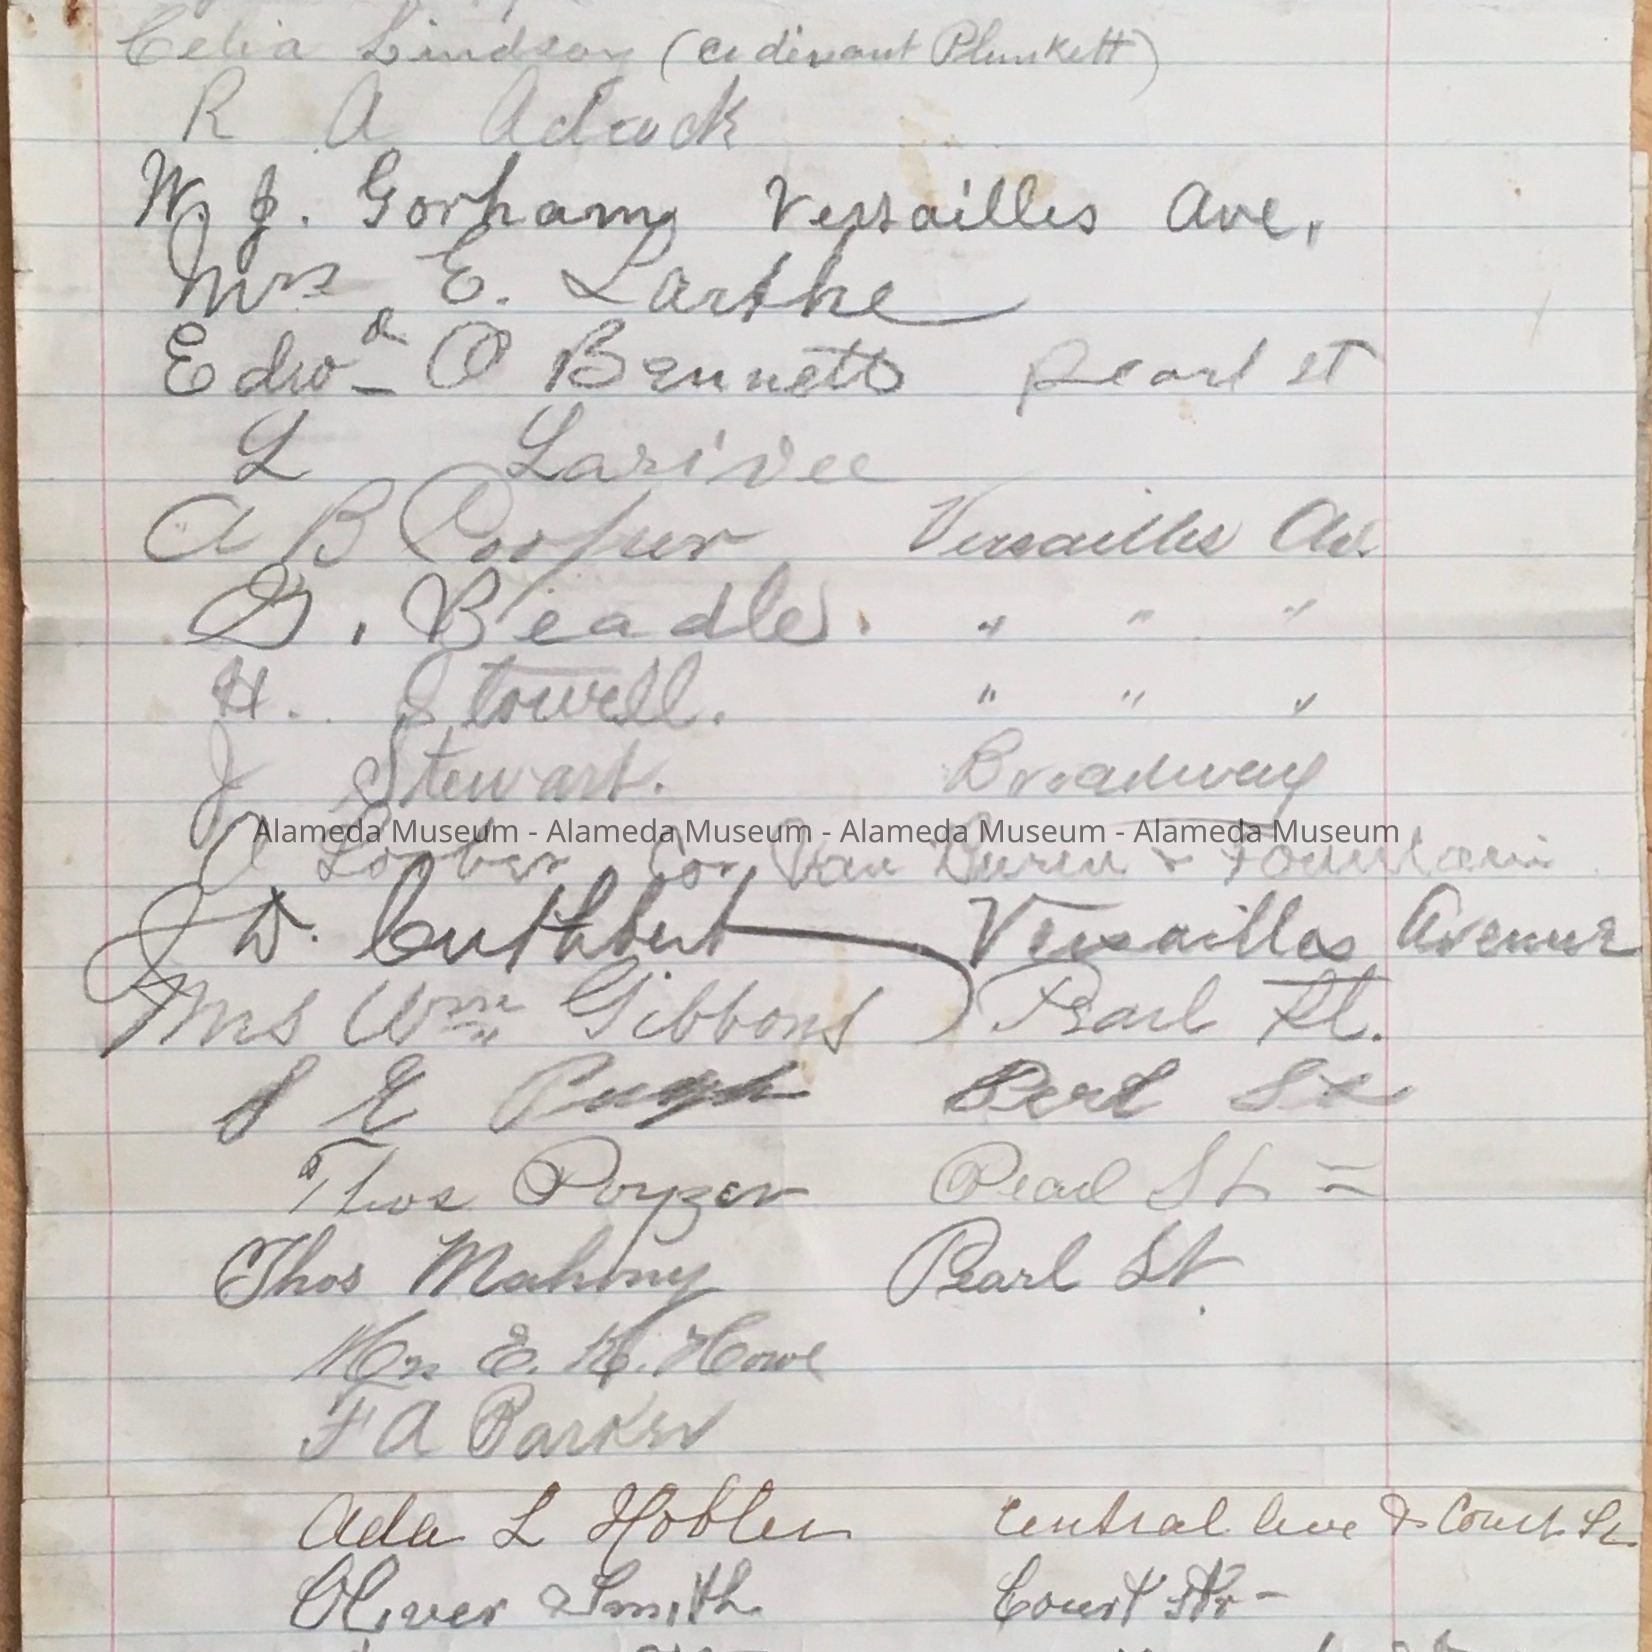 Celia Lindsay (ci devant Plunkett)
R A Adcock
W. J. Gorham Versailles Ave.
Mrs E. Larthe
Edwd O Bennett Pearl St
L Larivee
A B Cooper Versailles Av.
G. Beadle. " " "
H. Stowell. " " "
J Stewart. Broadway
Alameda Museum - Alameda Museum - Alameda Museum - Alameda Museum
Cor Van Buren & Fountain
J D. Cuthbert Versailles Avenue
Mrs Wm Gibbons Pearl St.
S E Pugh Perl St
Thos Poyzer Pearl St =
Thos Mahony Pearl St
Mrs E. K. Howe
F A Parker
Ada L Hobler Central Ave & Court St
Oliver Smith Court Str-